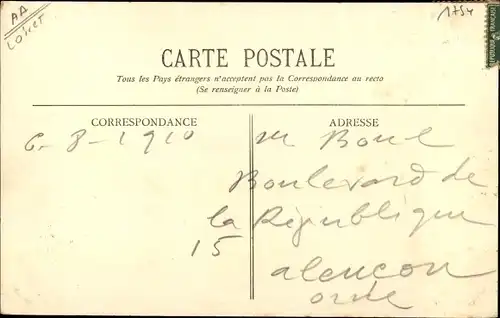 AA
LOIRET
1754
CARTE POSTALE
Tous les Pays étrangers n'acceptent pas la Correspondance au recto
(Se renseigner à la Poste)
CORRESPONDANCE
6-8-1910
15
ADRESSE
M Boul
Boulevard de
la République
alençon
orne